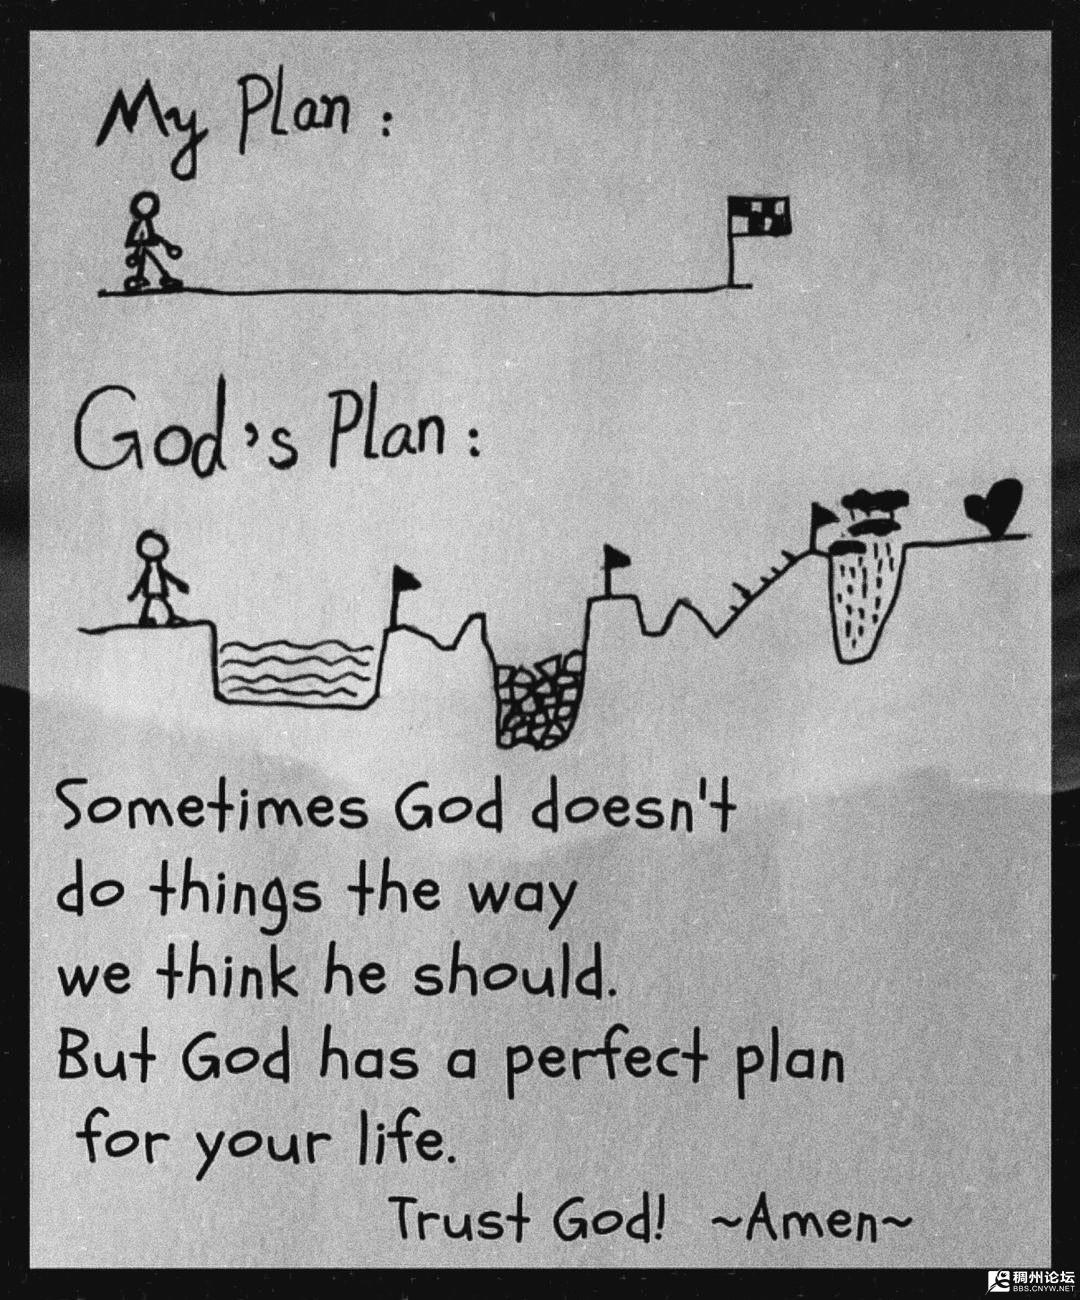 My Plan :
God's Plan :
Sometimes God doesn't
do things the way
we think he should.
But God has a perfect plan
for your life.
Trust God! ~Amen~
稠州论坛
BBS.CNYW.NET